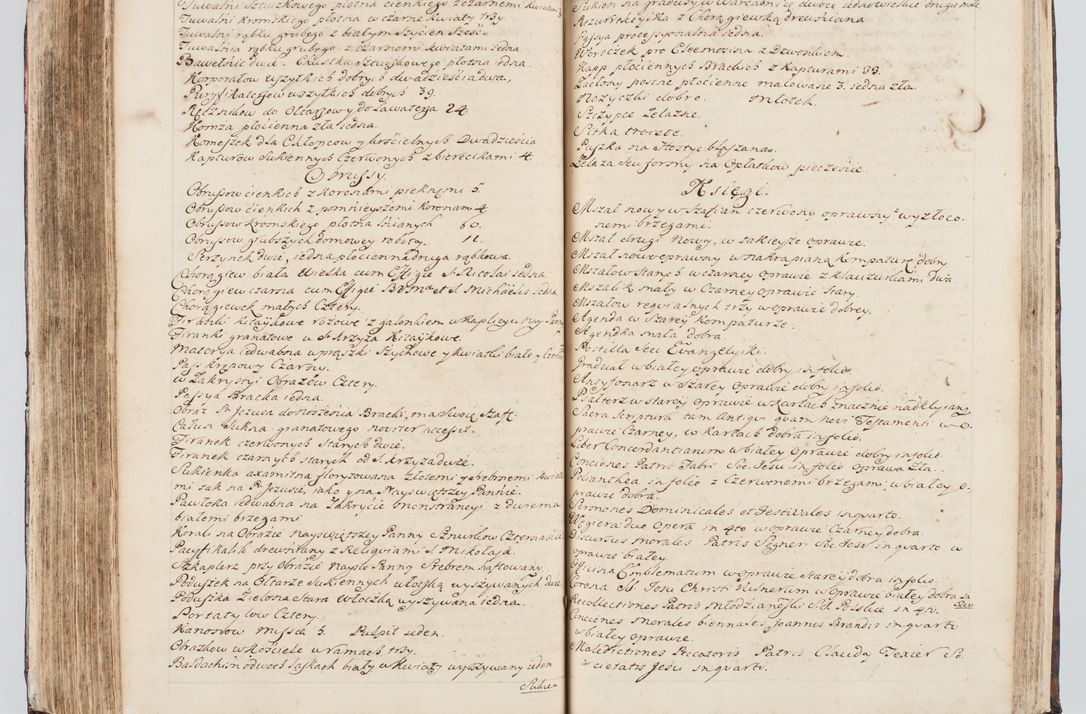 Tuwalni Szuzkowego płotna cienkiego z czarnemi kwiatami 3.
Tuwalni Kromskiego płotna w czarne kwiaty trzy.
Tuwalni rąbku grubego z białym szyciem sześć.
Tuwalnia rąbku grubego z czarnemi kwiatami jedna.
Bawełnic dwie. Chustka Szwabskowego płotna jedna.
Korporałow wszytkich dobrych dwadzieścia dwa,
Puryfikaterzow wszytkich dobrych 39.
Ręcznikow do Ołtarzow y do Lawaterza 24
Komza płocienna zła jedna.
Komeszek dla Chłopcow y kościelnych Dwadzieścia
Kapturow sukiennych Czerwonych z bierecikami 4.
Obrussy.
Obrussow cienkich z koronami pieknemi 5.
Obrussow cienkich z pomnieyszemi koronami 4
Obrussow kromskiego płotna lnianych 60.
Obrussow grubszych domowey roboty. 12.
Serzynek dwie, jedna płocienna druga rąbkowa.
Chorągiew biała wielka cum Effigie S. Nicolai jedna
Chorągiew czarna cum Effigie B.V. Mae et S. Michaelis jedna
Chorągiewek małych Cztery.
Firanki kitaykowe rożowe z galonkiem w Kaplicy u Nay Panny
Firanki granatowe u S. Krzyża Kitaykowe.
Materya jedwabna w prąszki szychowe y kwiatki białe y Czerw:
Pas krepowy Czarny.
w Zakrystyi Obrazow Cztery.
Passya Bracka jedna.
Obraz P. Jezusa do noszenia Bracki, ma swoię szaf:
Całun sukna granatowego noviter accessit.
Firanek czerwonych starych dwie.
Firanek czarnych starych od S. Krzyża dwie.
Sukienka axamitna floryzowana złotemi y srebrnemi kwiata
mi tak na P. Jezusie, jako y na Nayświętszey Pannie.
Pawłoka jedwabna na zakrycie monstrancyi z dwiema
białemi brzegami
Korali na Obrazie nayświętszey Panny sznurkow Czternaście
Pacyfikalik drewniany z Reliquiami S. Mikołaja.
Szkaplerz przy obrazie Nayś: Panny srebrem haftowany.
Poduszek na Ołtarze sukiennych włoczką wyszywanych dwie
Poduszka zielona stara włoczką wyszywana jedna.
Portatylow Cztery.
Kanonow Missae 3. Pulpit jeden.
Obrazkow w Kościele w ramach trzy.
Baldachim o dwoch laskach biały w kwiaty wyszywany jeden
Sukien
Sukien na gradusy w Warcabnicę dwoie jedno większe drugie małe
Krzuz rikcyika z Chorągiewką drewniana
Passya processyonalna jedna.
Woreczek pro Eleemosina z Dzwonkiem.
Kapp płociennych Brackich z kapturami 33.
Zasłony postne płocienne malowane 3. jedna zła.
Nożyczki dobre. Młotek.
Szczypce żelazne.
Sitka troiste.
Puszka na Hostye blaszana.
Żelaza seu formy na Opłatkow pieczenie.
Księgi.
Mszał nowy w szafian czerwony oprawny, wyzłoco
nem brzegami.
Mszał drugi nowy, w takieyze oprawie.
Mszał nowo oprawny w nakrapianą kompaturę dobry
Mszałow starych w czarney oprawie z klauzurkami dwa
Mszalik mały w czarney oprawie stary.
Mszałow requialnych trzy w oprawie dobrey.
Agenda w szarey kompaturze.
Agendka mała dobra.
Postilla seu Evangelyiki.
Graduał w białey oprawie dobry in folio.
Antyfonarz w szarey oprawie dobry in folio.
Psałterz w starey oprawie w kartach znacznie nadkłygany
Sacra Scriptura tam antiqui quam novi Testamenti w O.
prawie Czarney, w kartach dobra in folio.
Liber Concordantiarum w białey Oprawie dobry in folio.
Conciones Patris Fabri Soc. Jesu in folio oprawa zła.
Polianthea in folio z Czerwonemi brzegami w białey O.
prawie dobra.
Sermones Dominicales et Festivales in quarto.
Węgiera duo Opera in 4to w oprawie Czarney dobra.
Discursus morales Patris Segneri Soc. Jesu in quarto w
oprawie białey.
Officina Emblematum w oprawie starey dobra in folio.
Corona NS. Jesu Christi Lisnerum w Oprawie białey dobra in
folio
Recollectiones Patris Młodzianoski S.J. Polskie in 4to.
Conciones morales biennales Joannis Brandes in quarto
w białey oprawie.
Maledictiones Peccatoris Patris Claudy Texier So.
cietatis Jesu in quarto.